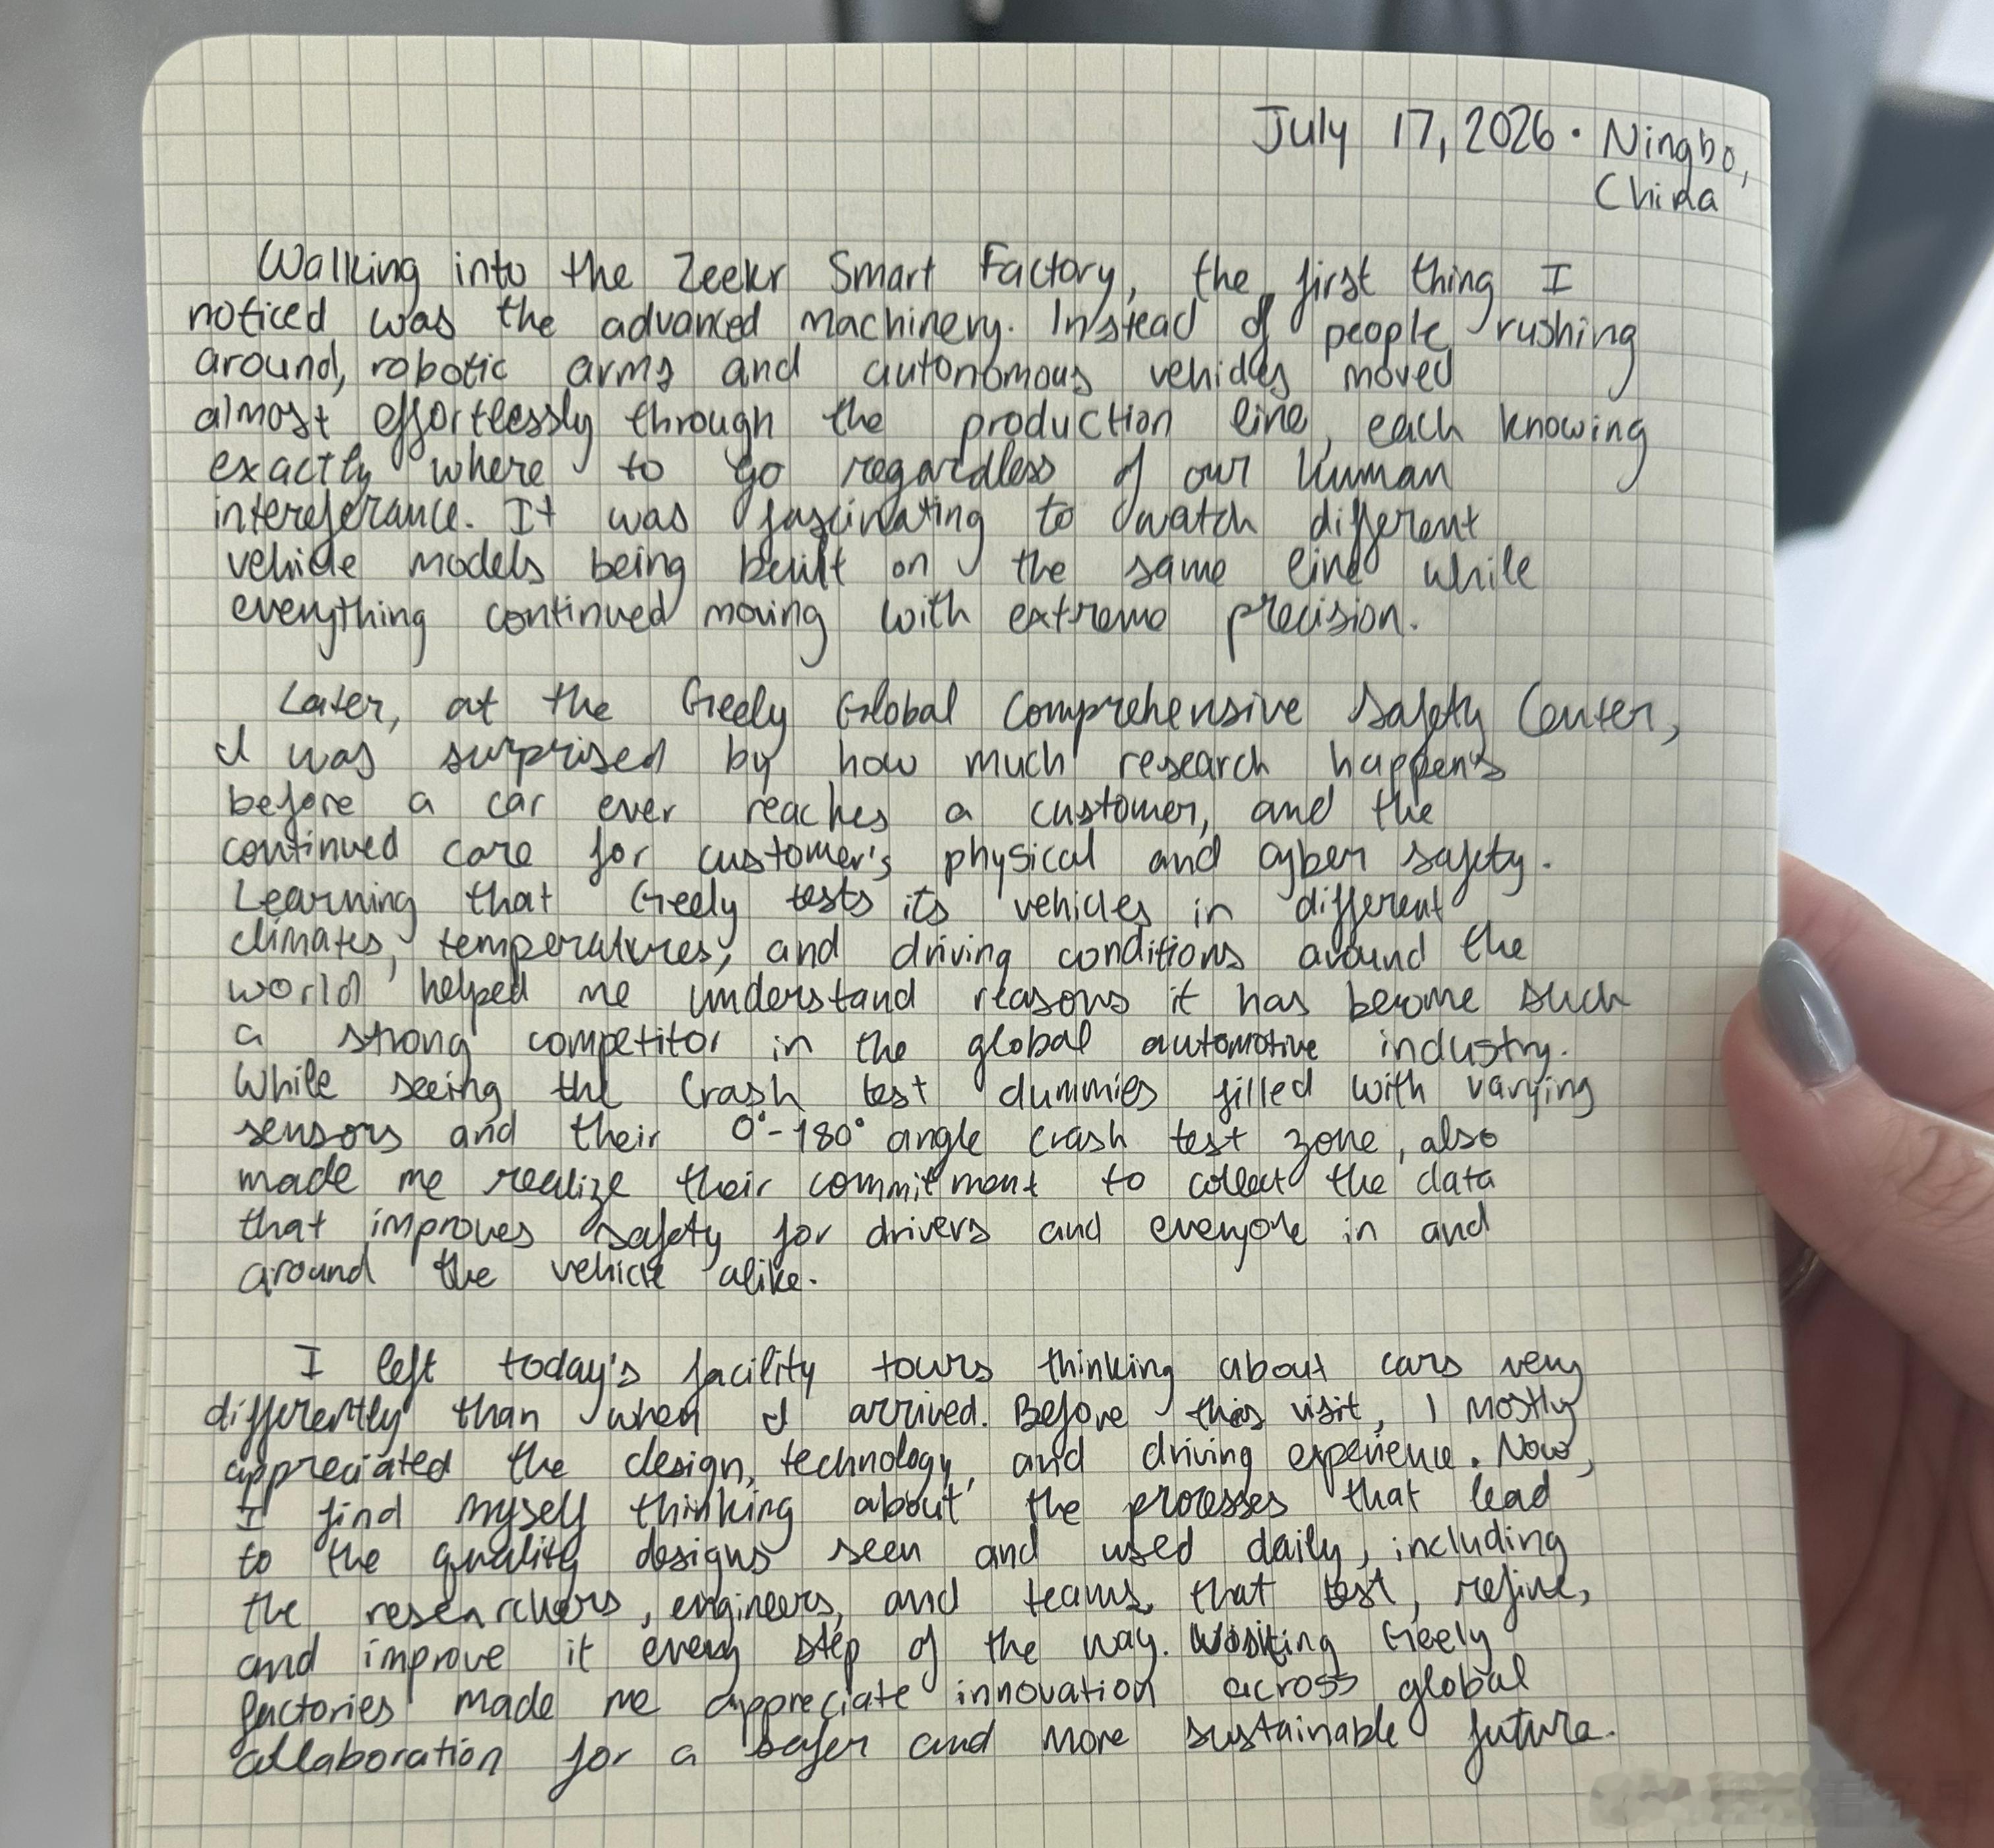 July 17, 2026 · Ningbo,
China
Walking into the Zeekr Smart Factory, the first thing I
noticed was the advanced machinery. Instead of people rushing
around, robotic arms and autonomous vehicles moved
almost effortlessly through the production line, each knowing
exactly where to go regardless of our human
intereferance. It was fascinating to watch different
vehicle models being built on the same line while
everything continued moving with extreme precision.
Later, at the Geely Global Comprehensive Safety Center,
I was surprised by how much research happens
before a car ever reaches a customer, and the
continued care for customer's physical and cyber safety.
Learning that Geely tests its vehicles in different
climates, temperatures, and driving conditions around the
world helped me understand reasons it has become such
a strong competitor in the global automotive industry.
While seeing the crash test dummies filled with varying
sensors and their 0°-180° angle crash test zone, also
made me realize their commitment to collect the data
that improves safety for drivers and everyone in and
around the vehicle alike.
I left today's facility tours thinking about cars very
differently than when I arrived. Before this visit, I mostly
appreciated the design, technology, and driving experience. Now,
I find myself thinking about the processes that lead
to the quality designs seen and used daily, including
the researchers, engineers, and teams that test, refine,
and improve it every step of the way. Visiting Geely
factories made me appreciate innovation across global
collaboration for a safer and more sustainable future.